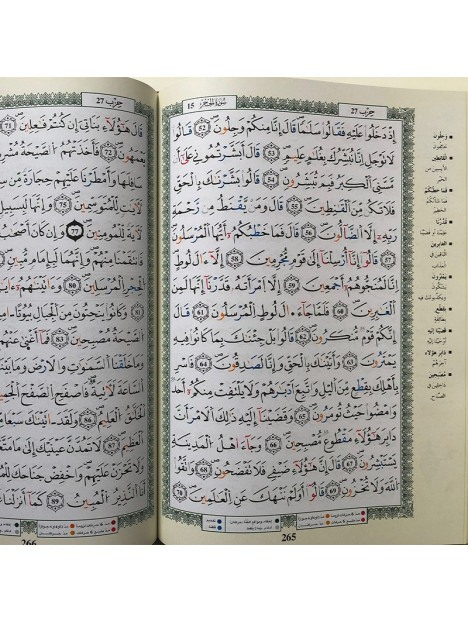 حزب 27
سُورَةُ الحِجْر 15
إِذْ دَخَلُوا عَلَيْهِ فَقَالُوا سَلَٰمًا قَالَ إِنَّا مِنكُمْ وَجِلُونَ 52 قَالُوا
لَا تَوْجَلِ انَّا نُبَشِّرُكَ بِغُلَٰمٍ عَلِيمٍ 53 قَالَ أَبَشَّرْتُمُونِي عَلَىٰ أَن
مَّسَّنِيَ الْكِبَرُ فَبِمَ تُبَشِّرُونِ 54 قَالُوا بَشَّرْنَٰكَ بِالْحَقِّ
فَلَا تَكُن مِّنَ الْقَٰنِطِينَ 55 قَالَ وَمَنْ يَّقْنَطُ مِن رَّحْمَةِ
رَبِّهِ إِلَّا الضَّالُّونَ 56 قَالَ فَمَا خَطْبُكُمُ أَيُّهَا الْمُرْسَلُونَ
57 قَالُوا إِنَّا أُرْسِلْنَا إِلَىٰ قَوْمٍ مُّجْرِمِينَ 58 إِلَّا ءَالَ لُوطٍ
إِنَّا لَمُنَجُّوهُمُ أَجْمَعِينَ 59 إِلَّا امْرَأَتَهُ قَدَّرْنَا إِنَّهَا لَمِنَ
الْغَٰبِرِينَ 60 فَلَمَّا جَاءَ الَ لُوطٍ الْمُرْسَلُونَ 61 قَالَ
إِنَّكُمْ قَوْمٌ مُّنكَرُونَ 62 قَالُوا بَلْ جِئْنَٰكَ بِمَا كَانُوا فِيهِ
يَمْتَرُونَ 63 وَأَتَيْنَٰكَ بِالْحَقِّ وَإِنَّا لَصَٰدِقُونَ 64 فَاسْرِ
بِأَهْلِكَ بِقِطْعٍ مِّنَ الَّيْلِ وَاتَّبِعَ ادْبَٰرَهُمْ وَلَا يَلْتَفِتْ مِنكُمُ أَحَدٌ
وَامْضُوا حَيْثُ تُومَرُونَ 65 وَقَضَيْنَا إِلَيْهِ ذَٰلِكَ الَامْرَ أَنَّ
دَابِرَ هَٰؤُلَاءِ مَقْطُوعٌ مُّصْبِحِينَ 66 وَجَاءَ اهْلُ الْمَدِينَةِ
يَسْتَبْشِرُونَ 67 قَالَ إِنَّ هَٰؤُلَاءِ ضَيْفِي فَلَا تَفْضَحُونِ 68 وَاتَّقُوا
اللَّهَ وَلَا تُخْزُونِ 69 قَالُوا أَوَلَمْ نَنْهَكَ عَنِ الْعَٰلَمِينَ 70
265
وجلون
خائفون
القانطين
فما خطبكم
قدّرنا
الغابرين
يمترون
بقطع
قضينا إليه
دابر هؤلاء
مصبحين
حزب 27
قَالَ هَٰؤُلَاءِ بَنَاتِيَ إِن كُنتُمْ فَٰعِلِينَ 71
يَعْمَهُونَ 72 فَأَخَذَتْهُمُ الصَّيْحَةُ
سَافِلَهَا وَأَمْطَرْنَا عَلَيْهِمْ حِجَارَةً مِّن
لَأَيَٰتٍ لِّلْمُتَوَسِّمِينَ 75 وَإِنَّهَا لَبِسَبِيلٍ
لَأَيَةً لِّلْمُومِنِينَ 77 وَإِن كَانَ أَصْحَٰبُ
فَانتَقَمْنَا مِنْهُمْ وَإِنَّهُمَا لَبِإِمَامٍ مُّبِينٍ
الْحِجْرِ الْمُرْسَلِينَ 80
وَكَانُوا يَنْحِتُونَ مِنَ الْجِبَالِ
الصَّيْحَةُ مُصْبِحِينَ 83 فَمَا أَغْنَىٰ عَنْهُم
وَمَا خَلَقْنَا السَّمَٰوَٰتِ وَالَارْضَ وَمَا
السَّاعَةَ لَأَتِيَةٌ فَاصْفَحِ الصَّفْحَ الْجَمِيلَ
الْخَلَّٰقُ الْعَلِيمُ 86 وَلَقَدَ اتَيْنَٰكَ سَبْعًا
الْعَظِيمَ 87 لَا تَمُدَّنَّ عَيْنَيْكَ إِلَىٰ مَا
عَلَيْهِمْ وَاخْفِضْ جَنَاحَكَ
أَنَا النَّذِيرُ الْمُبِينُ 89 كَمَا أَنزَلْنَا
266